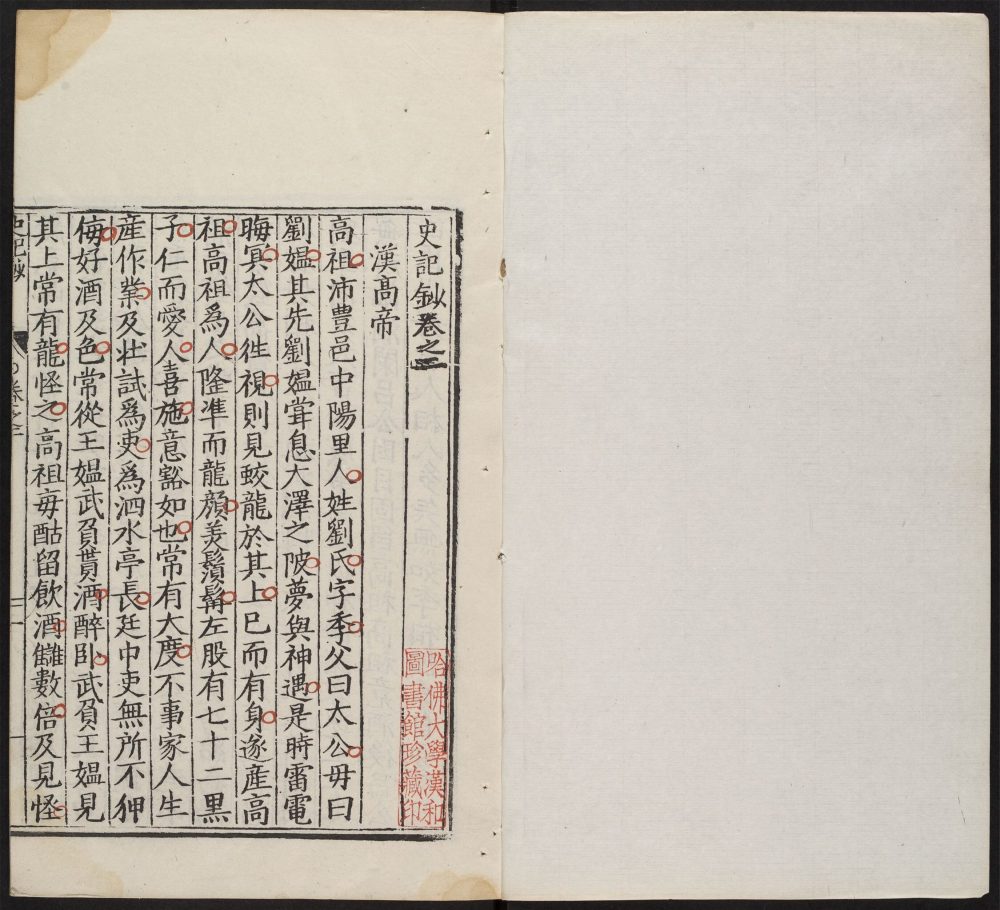 史記鈔卷之三
漢髙帝
高祖沛豊邑中陽里人姓劉氏字季父曰太公毋曰
劉媼其先劉媼甞息大澤之陂夢與神遇是時雷電
晦冥太公徃視則見蛟龍於其上巳而有身遂産高
祖高祖爲人隆凖而龍顔美鬚髯左股有七十二黒
子仁而愛人喜施意豁如也常有大度不事家人生
産作業及壮試爲吏爲泗水亭長廷中吏無所不狎
侮好酒及色常從王媼武負貰酒醉卧武負王媼見
其上常有龍怪之高祖毎酤留飲酒讎數倍及見怪
史記鈔
卷之三
哈佛大學漢和
圖書館珍藏印